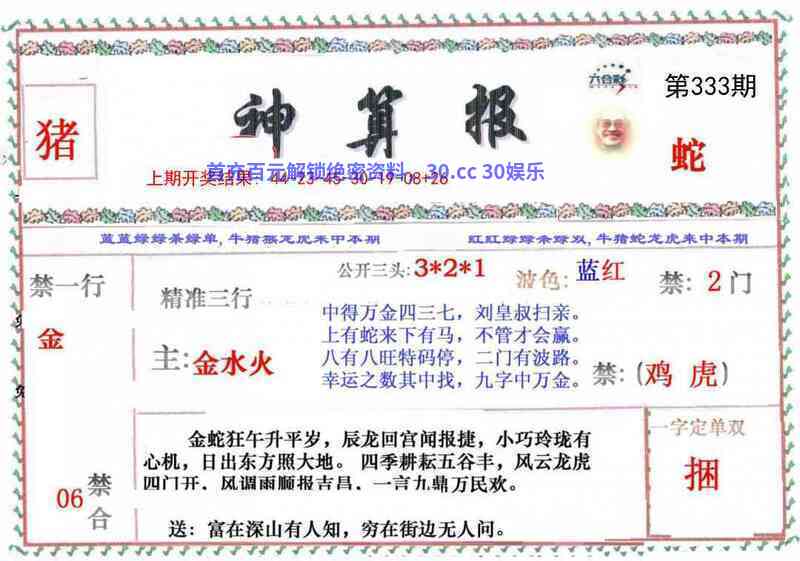 六合彩
第333期
猪
神算报
蛇
首充百元解锁绝密资料，30.cc 30娱乐
上期开奖结果：44-23-45-30-19-08+26
蓝蓝绿绿杀绿单,牛猪猴龙虎来中本期
红红绿绿杀绿双,牛猪蛇龙虎来中本期
禁一行
金
精准三行
主:金水火
公开三头:3*2*1
波色:蓝红
禁:2门
中得万金四三七，刘皇叔扫亲。
上有蛇来下有马，不管才会赢。
八有八旺特码停，二门有波路。
幸运之数其中找，九字中万金。
禁:(鸡 虎)
金蛇狂午升平岁，辰龙回宫闻报捷，小巧玲珑有
心机，日出东方照大地。 四季耕耘五谷丰，风云龙虎
四门开，风调雨顺报吉昌，一言九鼎万民欢。
一字定单双
捆
06
禁合
送：富在深山有人知，穷在街边无人问。